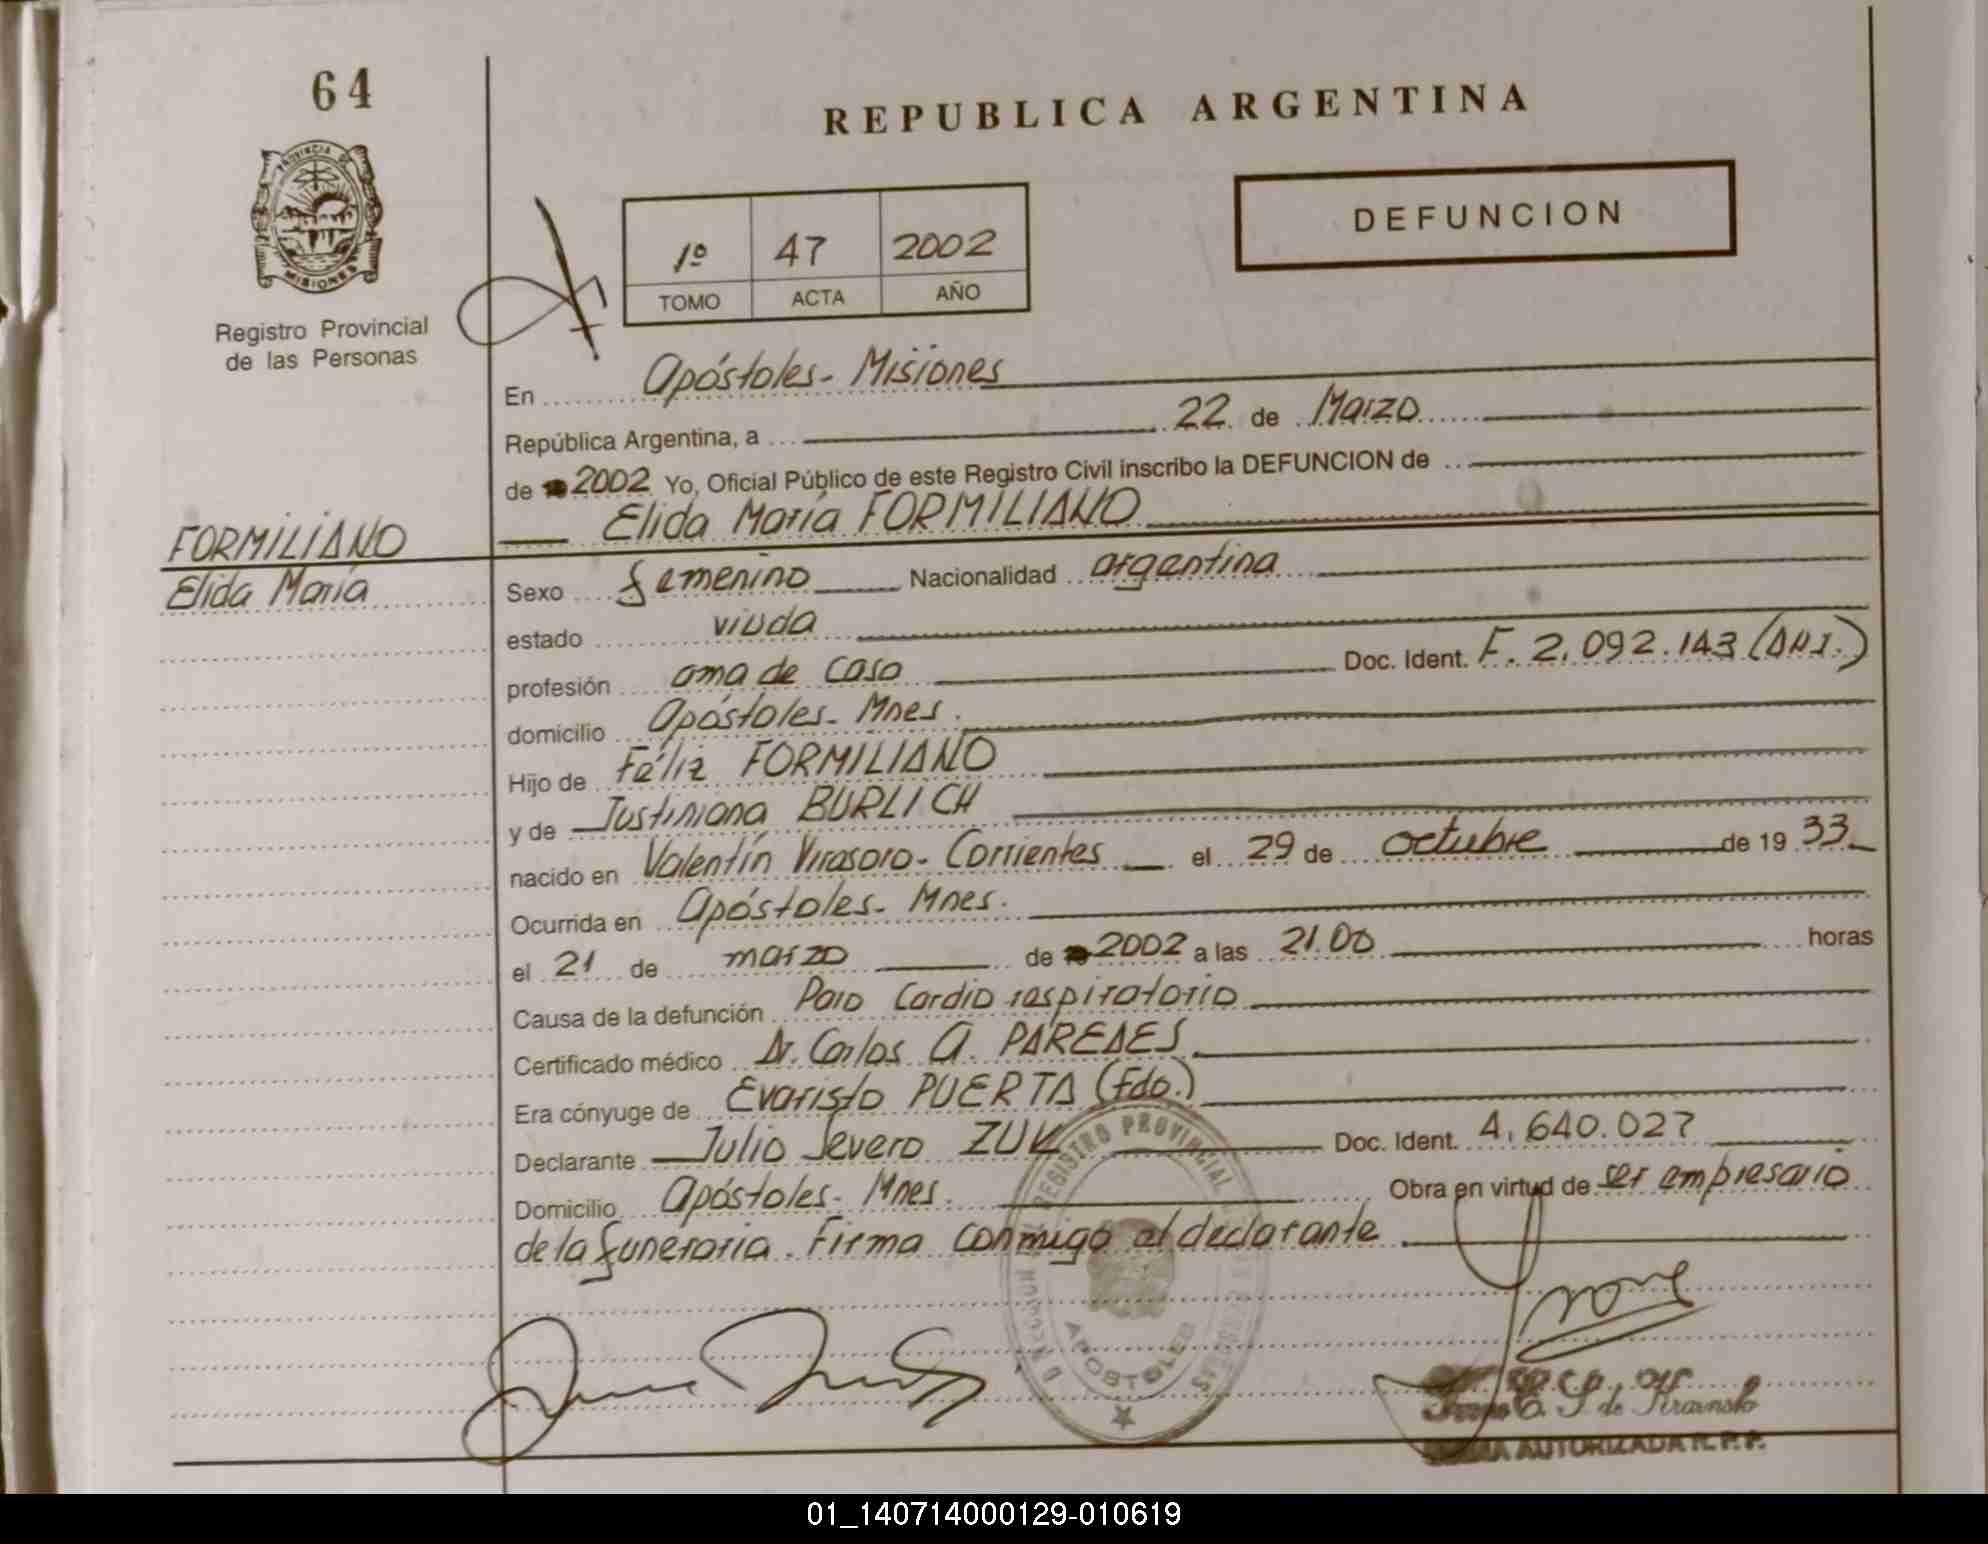 64
PROVINCIA DE
MISIONES
Registro Provincial
de las Personas
REPUBLICA ARGENTINA
DEFUNCION
1º 47 2002
TOMO ACTA AÑO
En Apóstoles - Misiones
República Argentina, a 22 de Marzo
de 2002 Yo, Oficial Público de este Registro Civil inscribo la DEFUNCION de
Elida María FORMILIANO
FORMILIANO
Elida María
Sexo femenino Nacionalidad argentina
estado viuda
profesión ama de casa Doc. Ident. F. 2.092.143 (DNI.)
domicilio Apóstoles - Mnes.
Hijo de Féliz FORMILIANO
y de Justiniana BURLICH
nacido en Valentín Virasoro - Corrientes el 29 de octubre de 19 33
Ocurrida en Apóstoles - Mnes.
el 21 de marzo de 2002 a las 21.00 horas
Causa de la defunción Paro Cardio respiratorio
Certificado médico Dr. Carlos A. PAREDES
Era cónyuge de Evaristo PUERTA (Fdo.)
Declarante Julio Severo ZUK Doc. Ident. 4.640.027
Domicilio Apóstoles - Mnes. Obra en virtud de ser empresario
de la funeraria. Firma conmigo el declarante
REGISTRO PROVINCIAL
APOSTOLES
MISIONES
AUTORIZADA R.P.P.
01_140714000129-010619